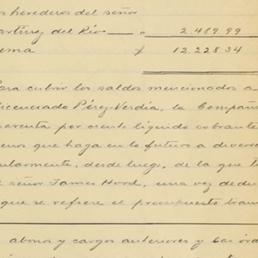 os herederos del señor
artínez del Río — " 2.489.99
uma $ 12.228.34
ara cubrir los saldos mencionados a
icenciado Pérez Verdía, la Compañ
arenta por ciento líquido sobrante
enos que haga en lo futuro a divers
ularmente, desde luego, de la que t
l señor James Hood, una vez dedu
que se refiere el presupuesto tran
s abonos y cargos anteriores y